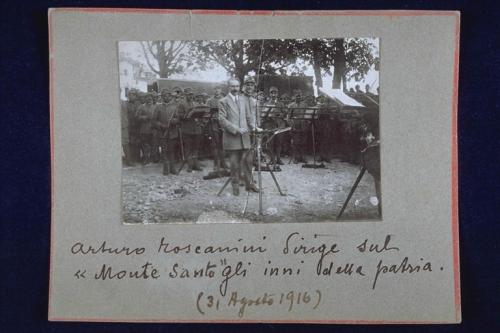 Arturo Toscanini dirige sul
« Monte Santo" gli inni della patria.
(31 Agosto 1916)